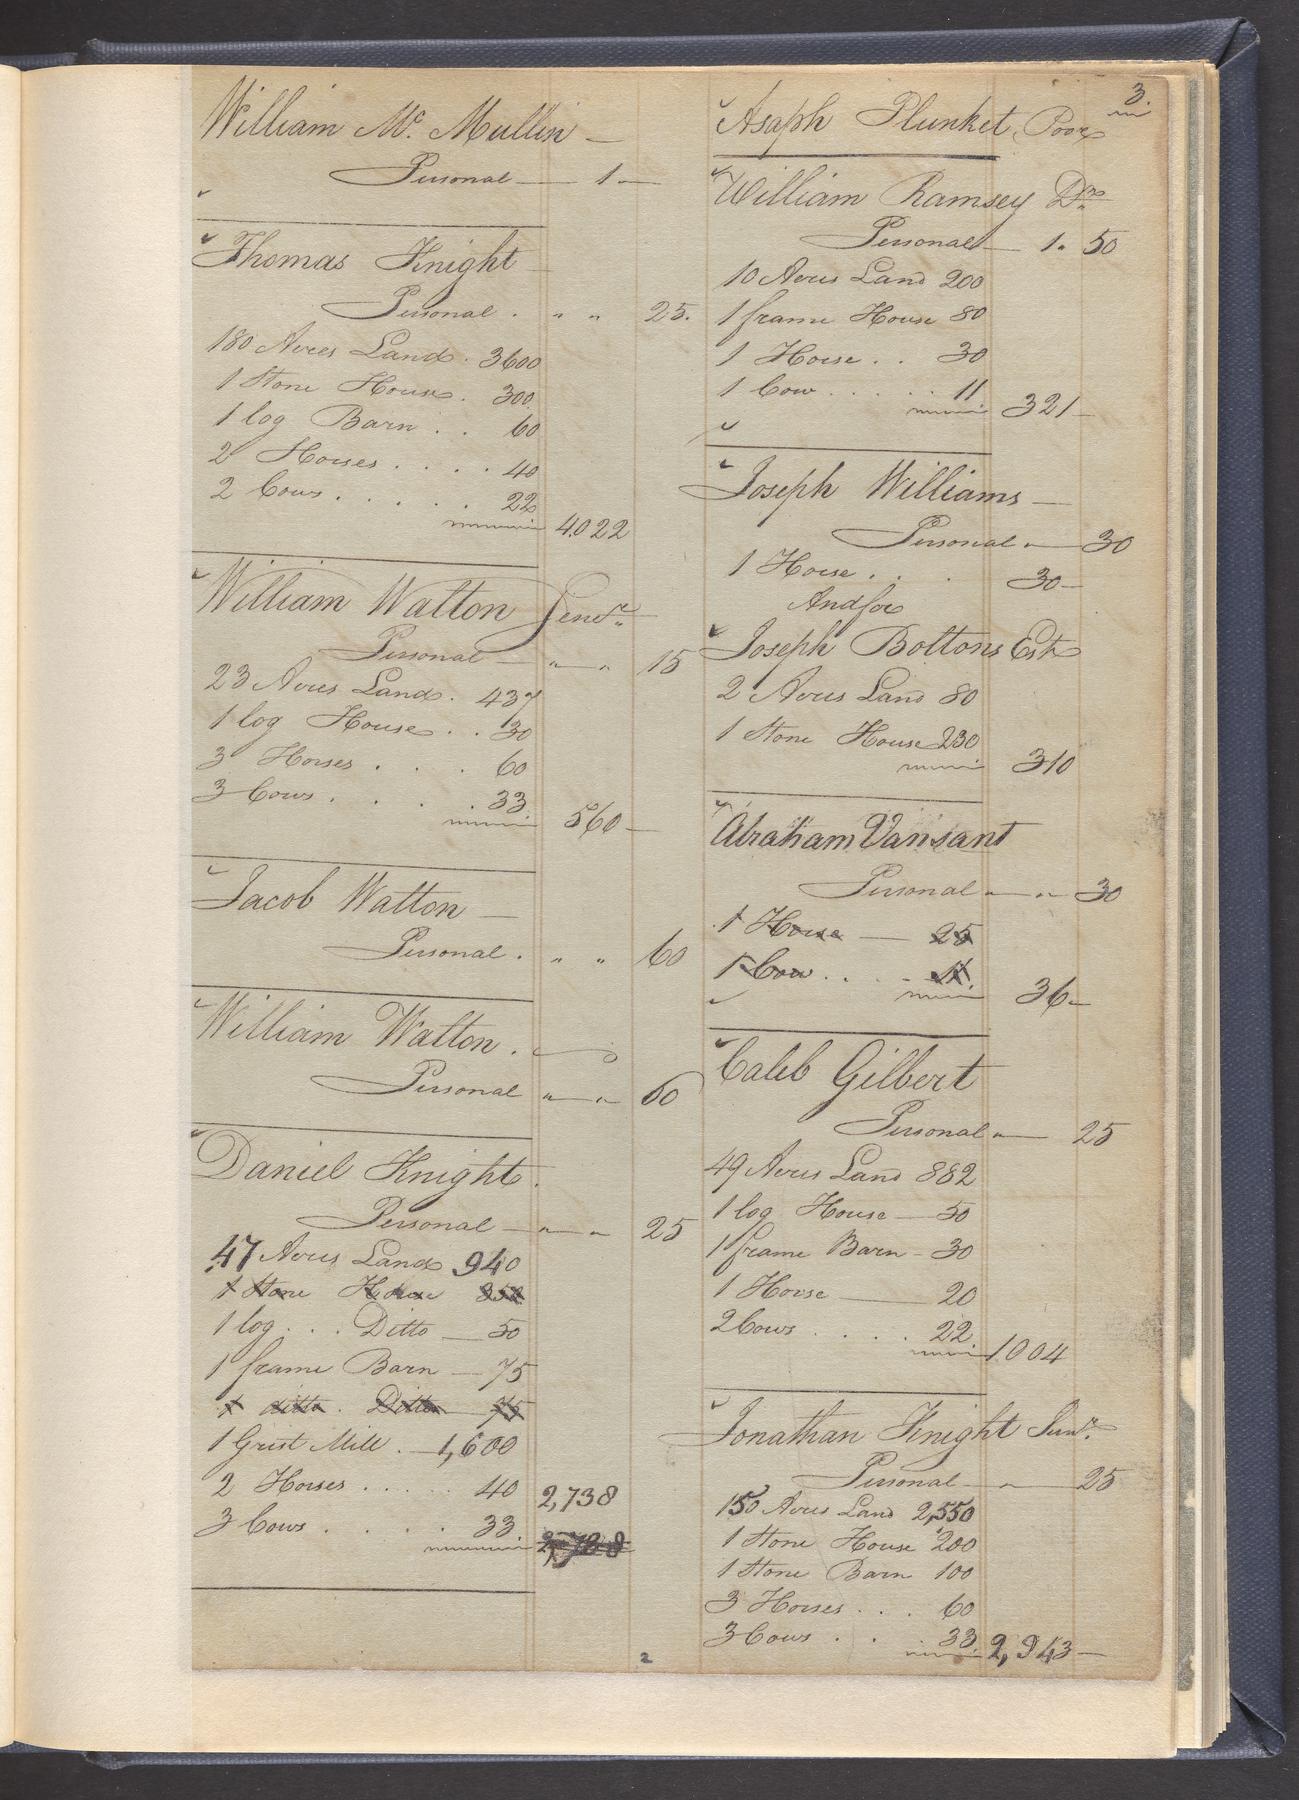 William Mc. Mullin —
Personal — 1 —
Thomas Knight —
Personal . " " 25.
180 Acres Land . 3600
1 Stone House . 300
1 log Barn . . 60
2 Horses . . . . 40
2 Cows . . . . . 22
4.022
William Walton Senr.
Personal — " — " 15
23 Acres Land . 437
1 log House . . 30
3 Horses . . . 60
3 Cows . . . . 33
560 —
Jacob Walton —
Personal . " " 60
William Walton .
Personal " — " 60
Daniel Knight .
Personal — " — " 25
47 Acres Land 940
1 Stone House 250
1 log . . . Ditto — 50
1 frame Barn — 75
1 ditto . Ditto 75
1 Grist Mill . — 1,600
2 Horses . . . . . 40 2,738
3 Cows . . . . . 33.
2
3.
Asaph Plunket, Poor
William Ramsey Dr.
Personal — 1 " 50
10 Acres Land 200
1 frame House 80
1 Horse . . 30
1 Cow . . . . . 11
321 —
Joseph Williams —
Personal " — 30
1 Horse . . . 30 —
And for
Joseph Boltons Est
2 Acres Land 80
1 Stone House 230
310
Abraham Vansant
Personal " — " 30
1 Horse — 25
1 Cow . . . . 11
36 —
Caleb Gilbert
Personal " — 25
49 Acres Land 882
1 log House — 50
1 frame Barn — 30
1 Horse — 20
2 Cows . . . . 22
1004
Jonathan Knight Junr.
Personal — " — 25
150 Acres Land 2,550
1 Stone House 200
1 Stone Barn 100
3 Horses . . . 60
3 Cows . . . 33 2,943 —